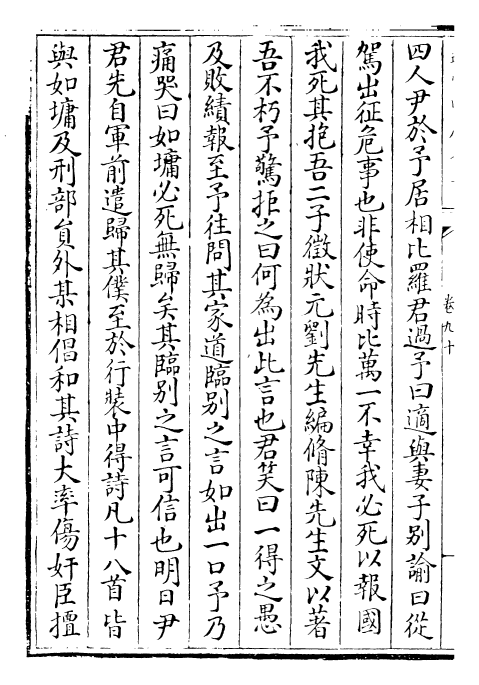 四人尹於予居相比羅君過予曰適與妻子別諭曰從
駕出征危事也非使命時比萬一不幸我必死以報國
我死其抱吾二子徵狀元劉先生編脩陳先生文以著
吾不朽予驚拒之曰何為出此言也君笑曰一得之愚
及敗績報至予往問其家道臨別之言如出一口予乃
痛哭曰如墉必死無歸矣其臨別之言可信也明日尹
君先自軍前遣歸其僕至於行裝中得詩凡十八首皆
與如墉及刑部員外某相倡和其詩大率傷奸臣擅
卷九十